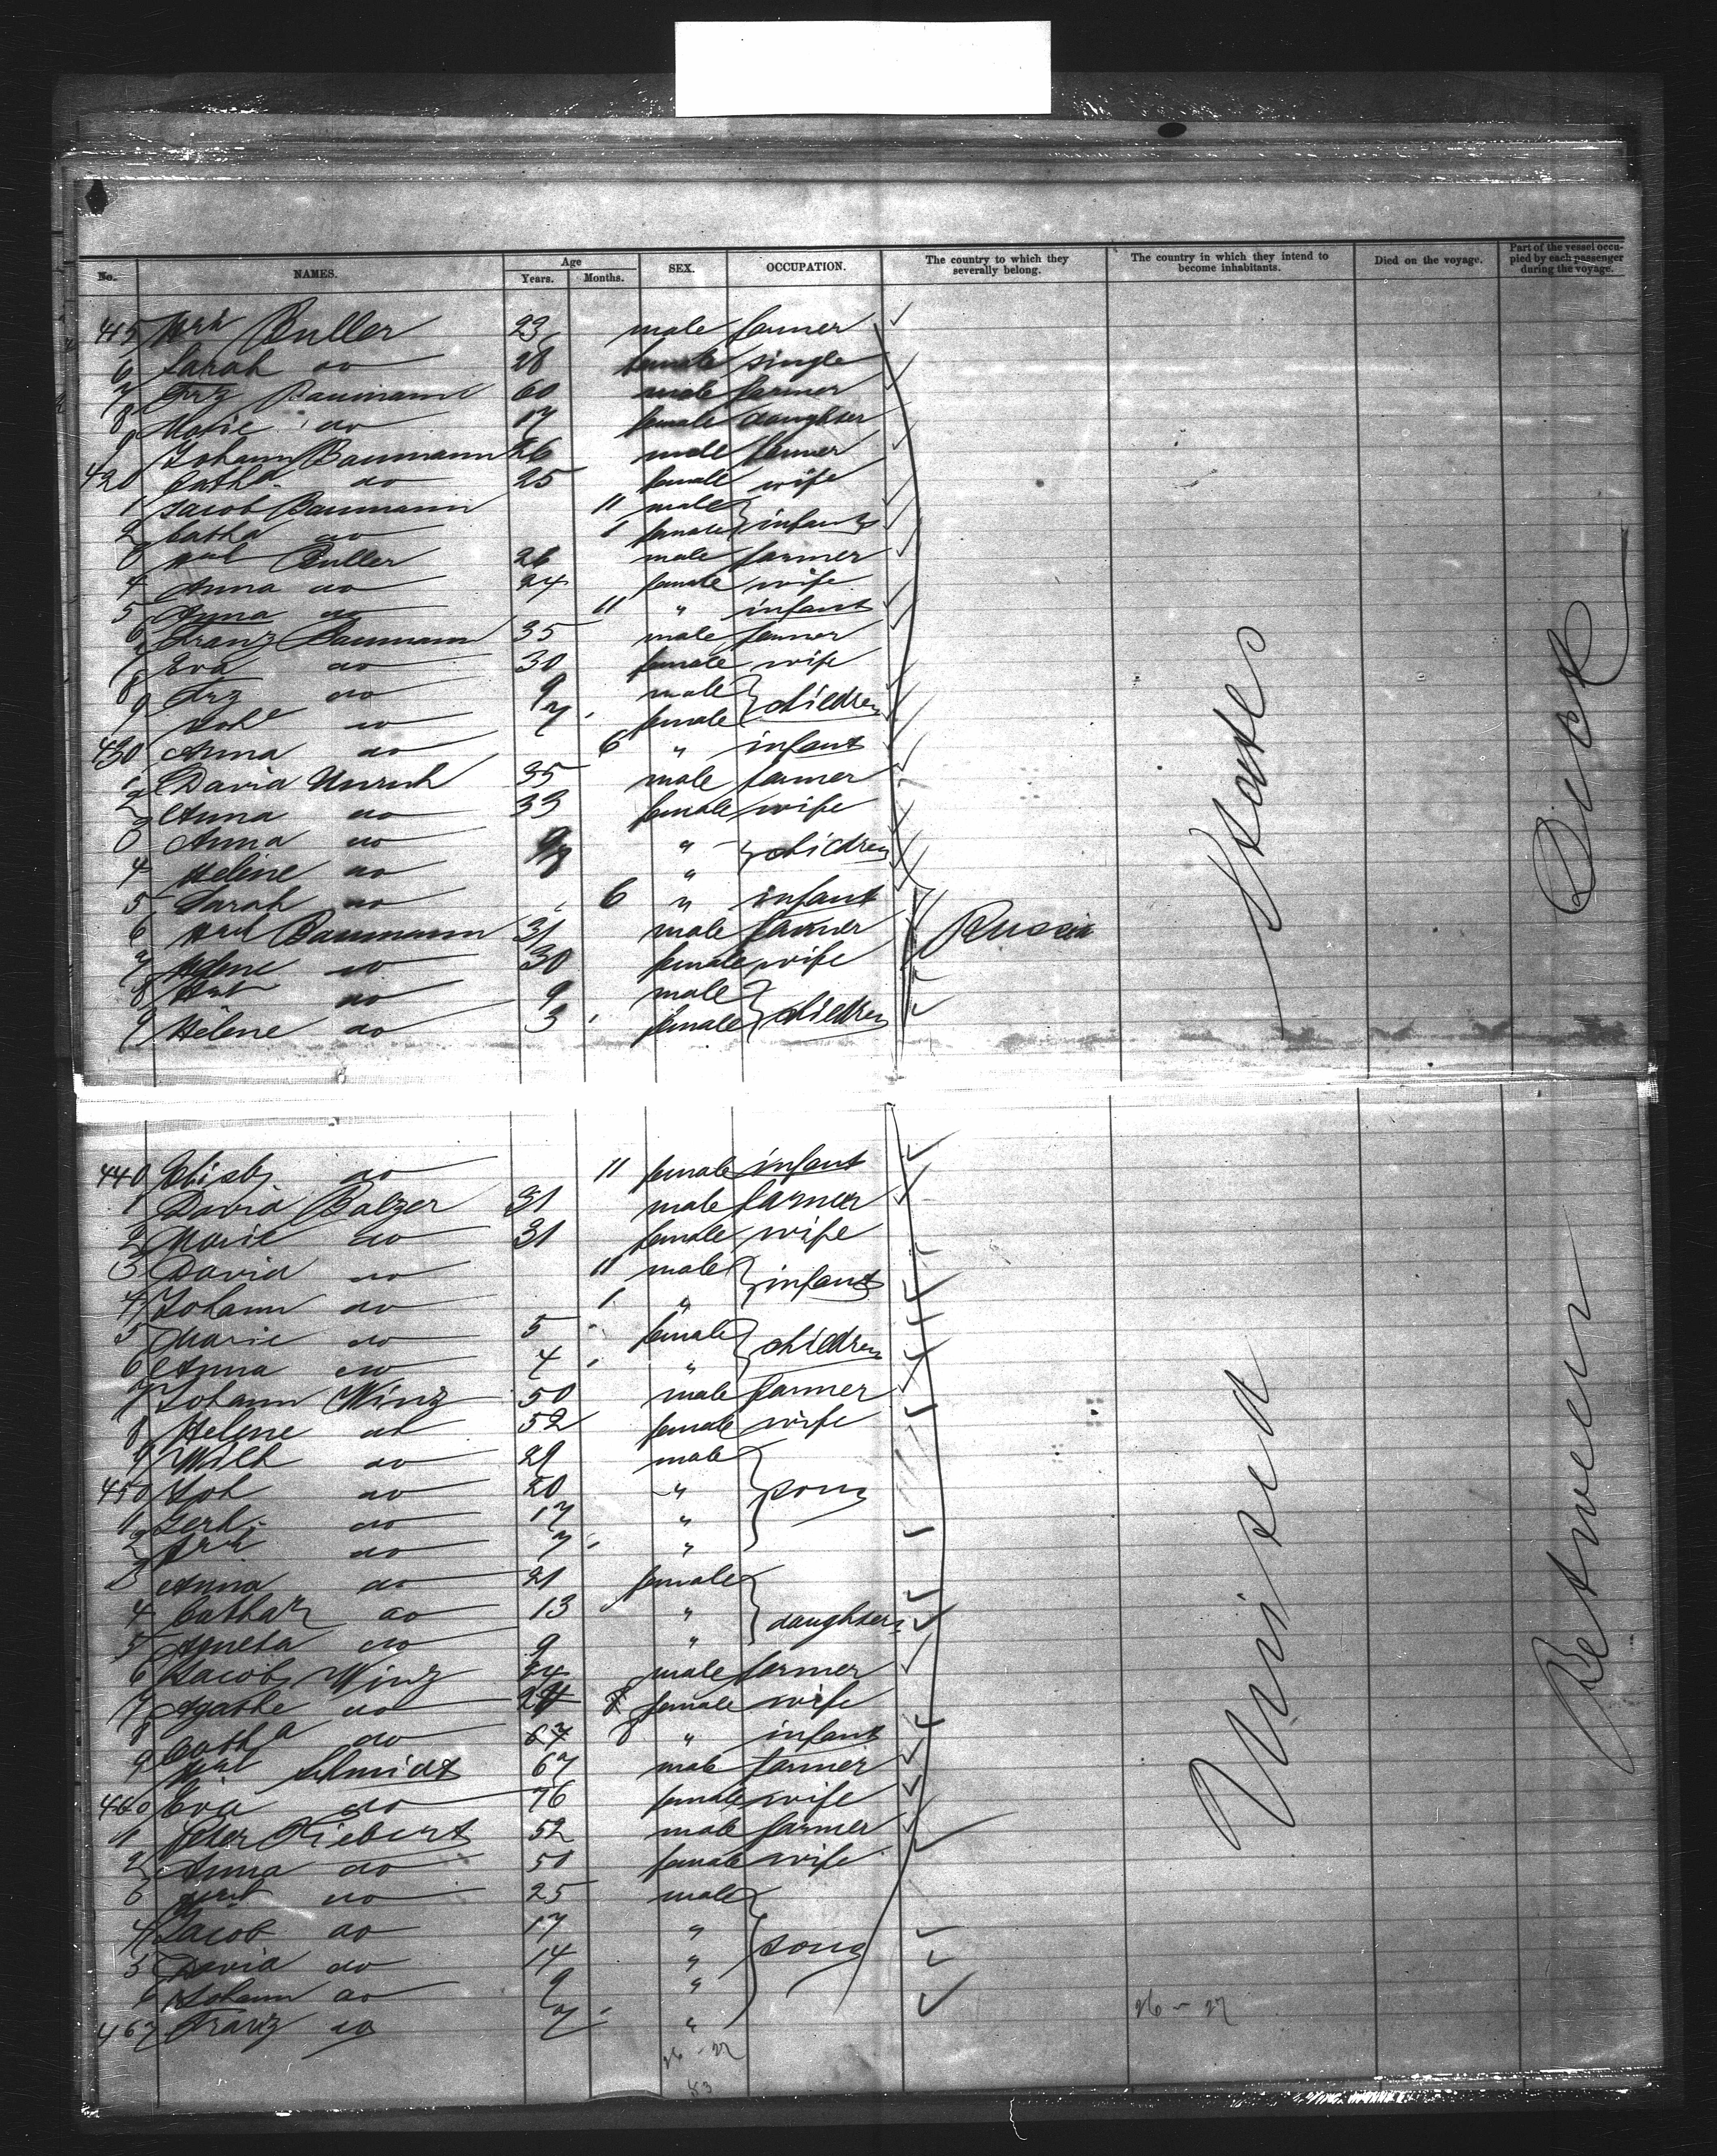 No. NAMES. Age Years. Months. SEX. OCCUPATION. The country to which they severally belong. The country in which they intend to become inhabitants. Died on the voyage. Part of the vessel occupied by each passenger during the voyage.
415 Buller 23 male farmer
6 Sarah do 28 female single
7 Frz Baumann 60 male farmer
8 Marie do 17 female daughter
9 Johann Baumann 26 male farmer
420 Cathe do 25 female wife
1 Jacob Baumann 11 male
2 Catha do female } infants
3 Buller 26 male farmer
4 Anna do 24 female wife
5 Anna do 11 " infant
6 Franz Baumann 35 male farmer
7 Eva do 30 female wife
8 Frz do 9 male
9 do 7 female } children
430 Anna do 6 " infant
David Unruh 35 male farmer
2 Anna do 33 female wife
3 Anna do 9 " } children
4 Helene do "
5 Sarah do 6 " infant
6 Baumann 31 male farmer Russia
7 Helene do 30 female wife
8 do 9 male
9 Helene do 3 female } children
440 Elisb. do 11 female infant
1 David Balzer 31 male farmer
2 Marie do 31 female wife
3 David do 11 male } infants
4 Johann do 1 "
5 Marie do 5 female } children
6 Anna do 4 "
7 Johann Winz 50 male farmer
8 Helene do 52 female wife
9 Wilh do 29 male
450 Joh do 20 " } sons
1 Gerh. do 17 "
2 do 7 "
3 Anna do 21 female
4 Cathar do 13 " } daughters
5 Agneta do 9 "
6 Jacob Winz 24 male farmer
7 Agathe do female wife
8 Catha do 8 " infant
9 Schmidt 67 male farmer
460 Eva do 76 female wife
1 Peter Siebert 52 male farmer
2 Anna do 50 female wife
3 do 25 male
4 Jacob do 17 "
5 David do 14 " } sons
6 Johann do 9 "
467 Franz do 7 "
United States
Between Deck
26 - 27
26 - 27